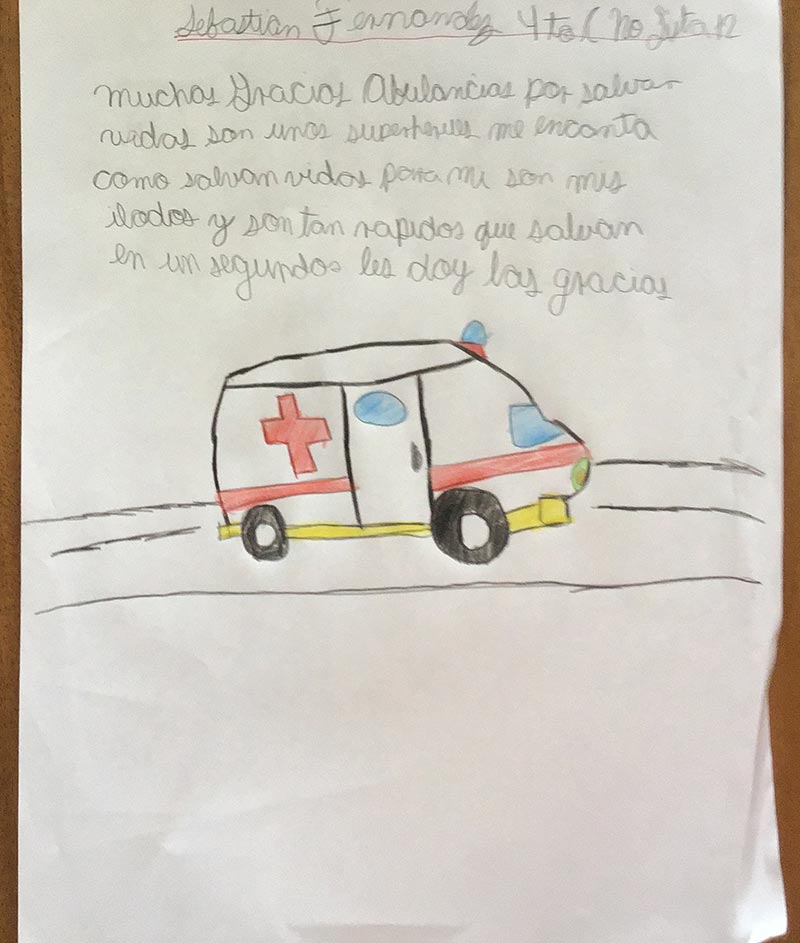 Sebastian Fernandez 4to C no
muchas gracias Abulancias por salvar
vidas son unos superheroes me encanta
como salvan vidas para mi son mis
ilodos y son tan rapidos que salvan
en un segundos les doy las gracias